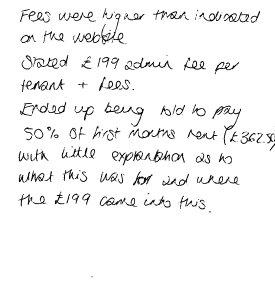 Fees were higher than indicated
on the website
Stated £199 admin fee per
tenant + fees.
Ended up being told to pay
50% of first months rent (£362.50)
with little explanation as to
what this was for and where
the £199 came into this.